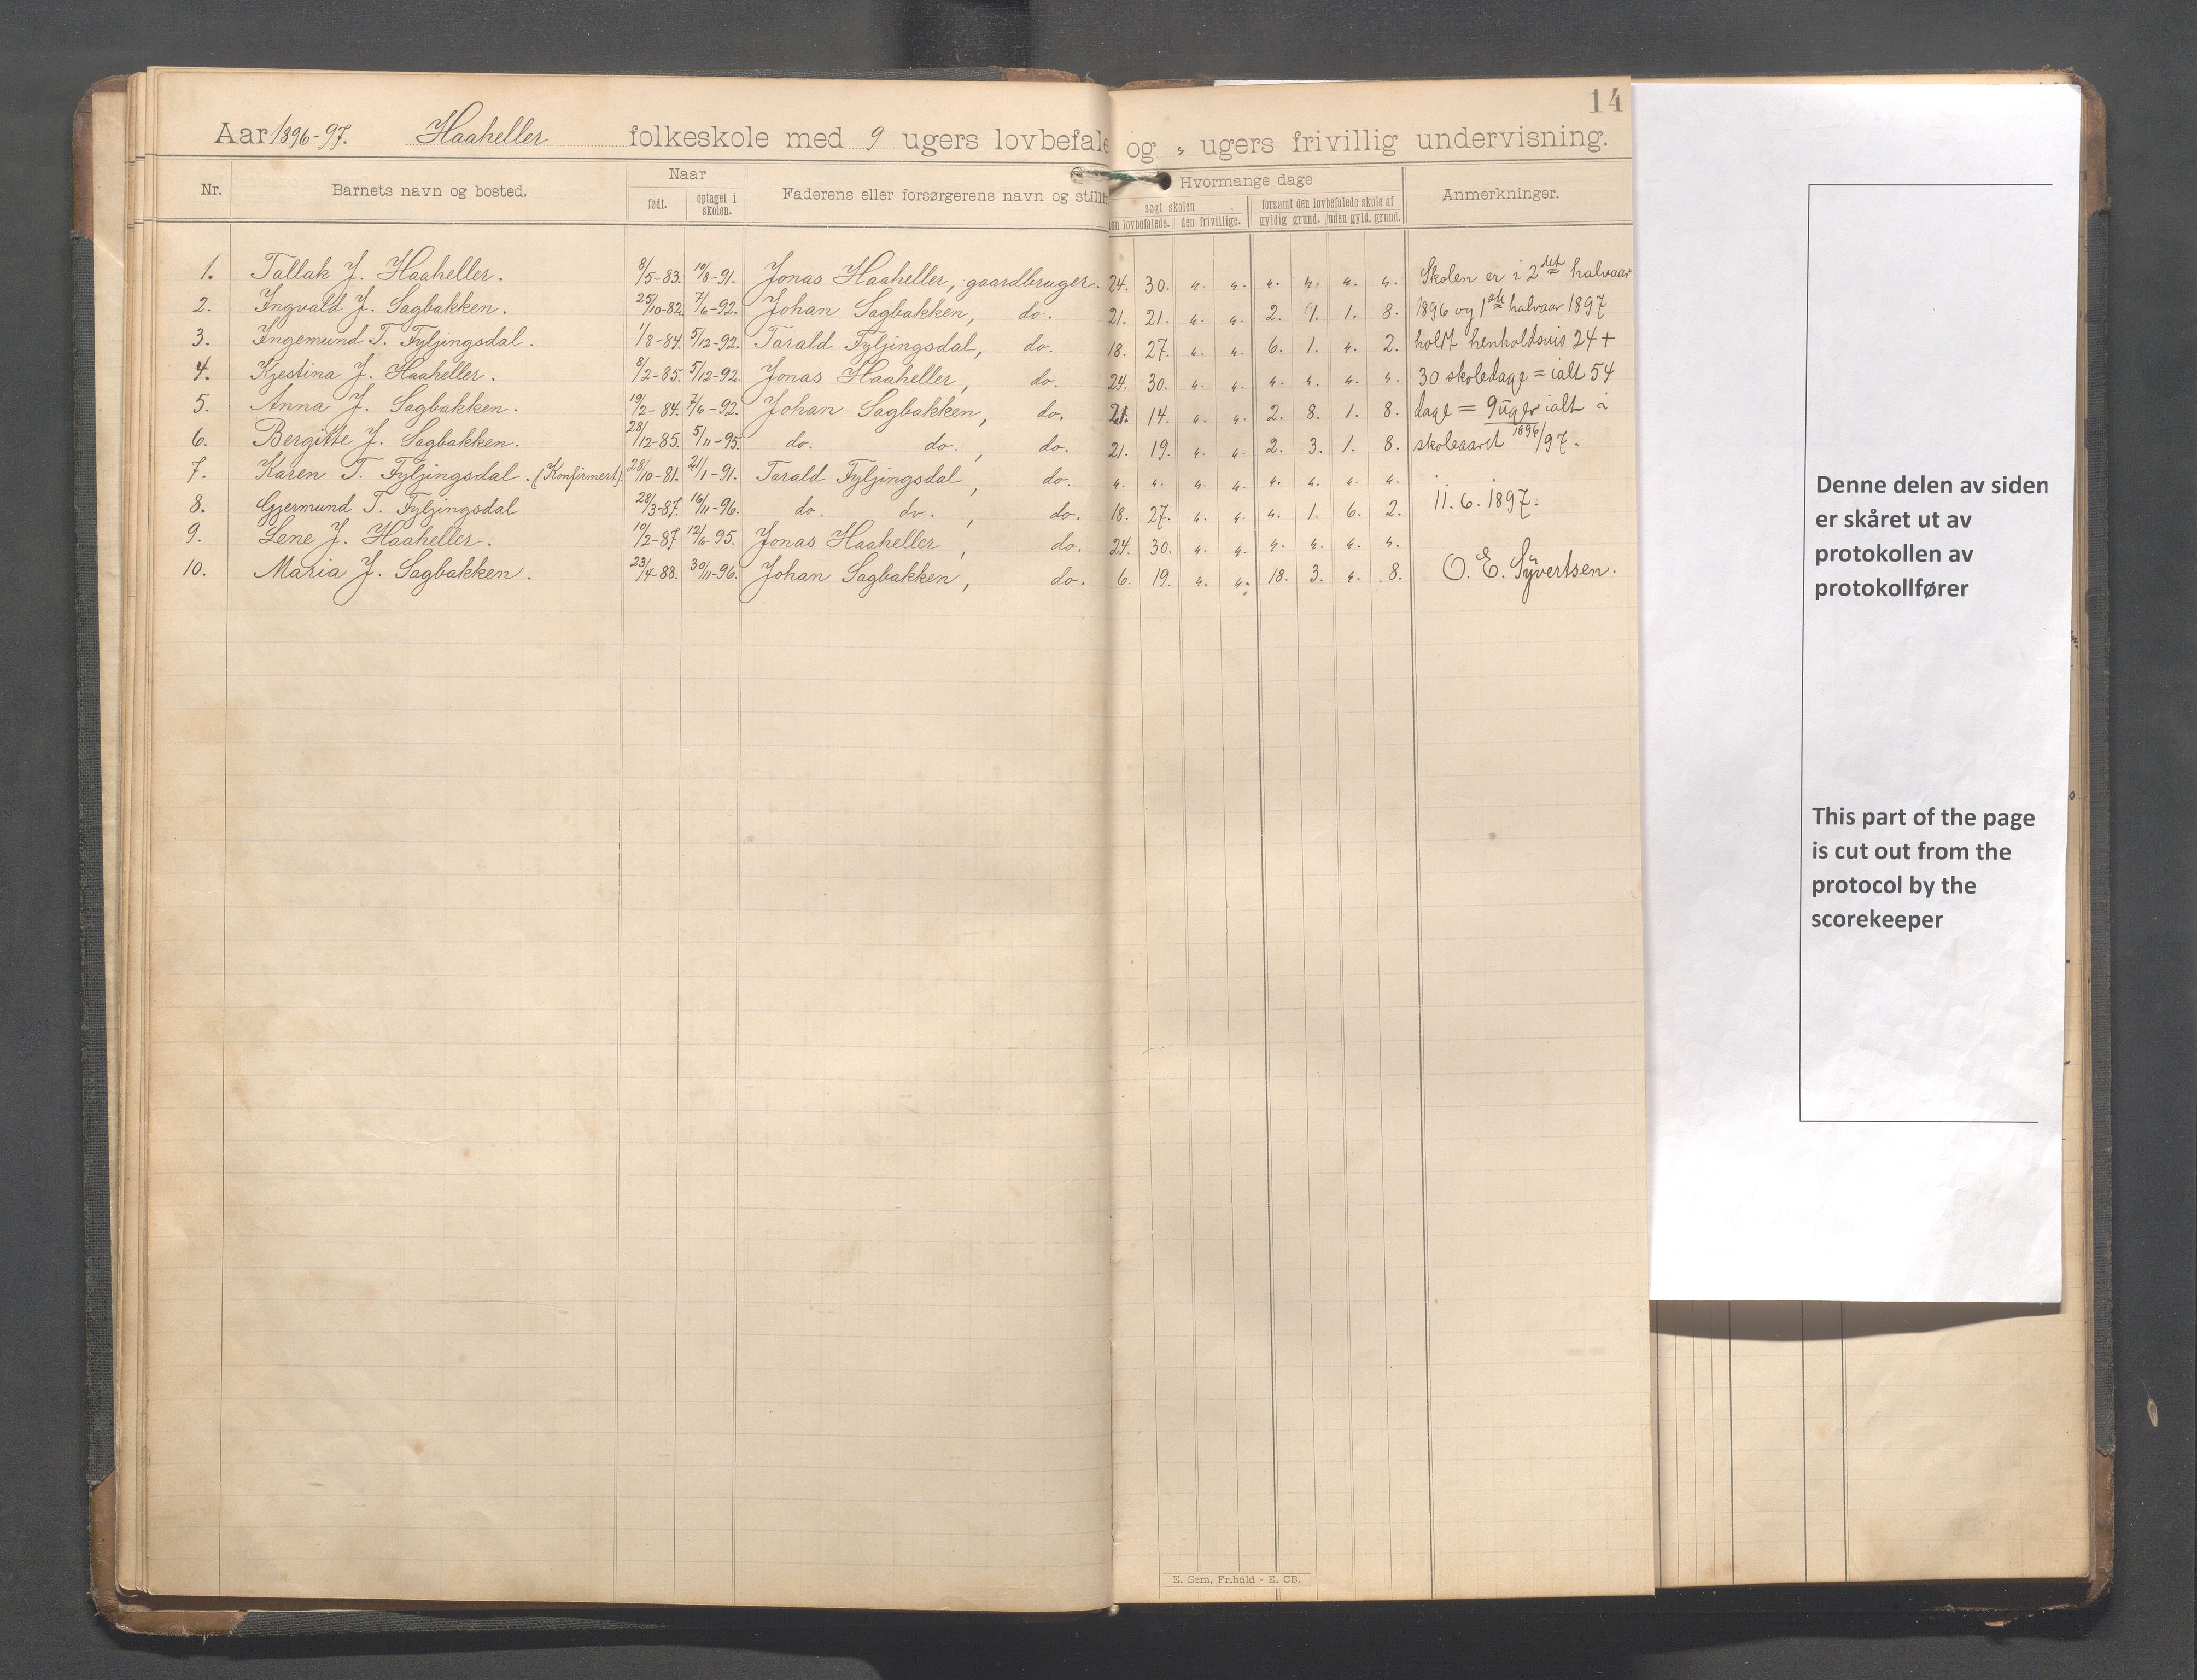 14
Aar 1896-97. Haaheller folkeskole med 9 ugers lovbefale og „ ugers frivillig undervisning.
Nr. Barnets navn og bosted. Naar Faderens eller forsørgerens navn og still Hvormange dage Anmerkninger.
født. optaget i skolen. søgt skolen forsømt den lovbefalede skole af
den lovbefalede. den frivillige. gyldig grund. uden gyld. grund.
1. Tallak J. Haaheller. 8/5-83. 10/8-91. Jonas Haaheller, gaardbruger. 24. 30. „. „. „. „. „. „. Skolen er i 2det halvaar
2. Ingvald J. Sagbakken. 25/10-82. 7/6-92. Johan Sagbakken, do. 21. 21. „. „. 2. 1. 1. 8. 1896 og 1ste halvaar 1897
3. Ingemund T. Fyljingsdal. 1/8-84. 5/12-92. Tarald Fyljingsdal, do. 18. 27. „. „. 6. 1. „. 2. holdt henholdsvis 24 +
4. Kjestina J. Haaheller. 8/2-85. 5/12-92. Jonas Haaheller, do. 24. 30. „. „. „. „. „. „. 30 skoledage = ialt 54
5. Anna J. Sagbakken. 19/2-84. 7/6-92. Johan Sagbakken, do. 21. 14. „. „. 2. 8. 1. 8. dage = 9 uger ialt i
6. Bergitte J. Sagbakken. 28/12-85. 5/11-95. do. do., do. 21. 19. „. „. 2. 3. 1. 8. skoleaaret 1896/97.
7. Karen T. Fyljingsdal. (Konfirmert). 28/10-81. 21/1-91. Tarald Fyljingsdal, do. „. „. „. „. „. „. „. „.
8. Gjermund T. Fyljingsdal 28/3-87. 16/11-96. do. do., do. 18. 27. „. „. „. 1. 6. 2. 11.6.1897.
9. Lene J. Haaheller. 10/2-87 12/6-95. Jonas Haaheller, do. 24. 30. „. „. „. „. „. „.
10. Maria J. Sagbakken. 23/4-88. 30/11-96. Johan Sagbakken, do. 6. 19. „. „. 18. 3. „. 8. O. E. Syvertsen.
E. Sem, Fr.hald - E. CB.
Denne delen av siden
er skåret ut av
protokollen av
protokollfører
This part of the page
is cut out from the
protocol by the
scorekeeper